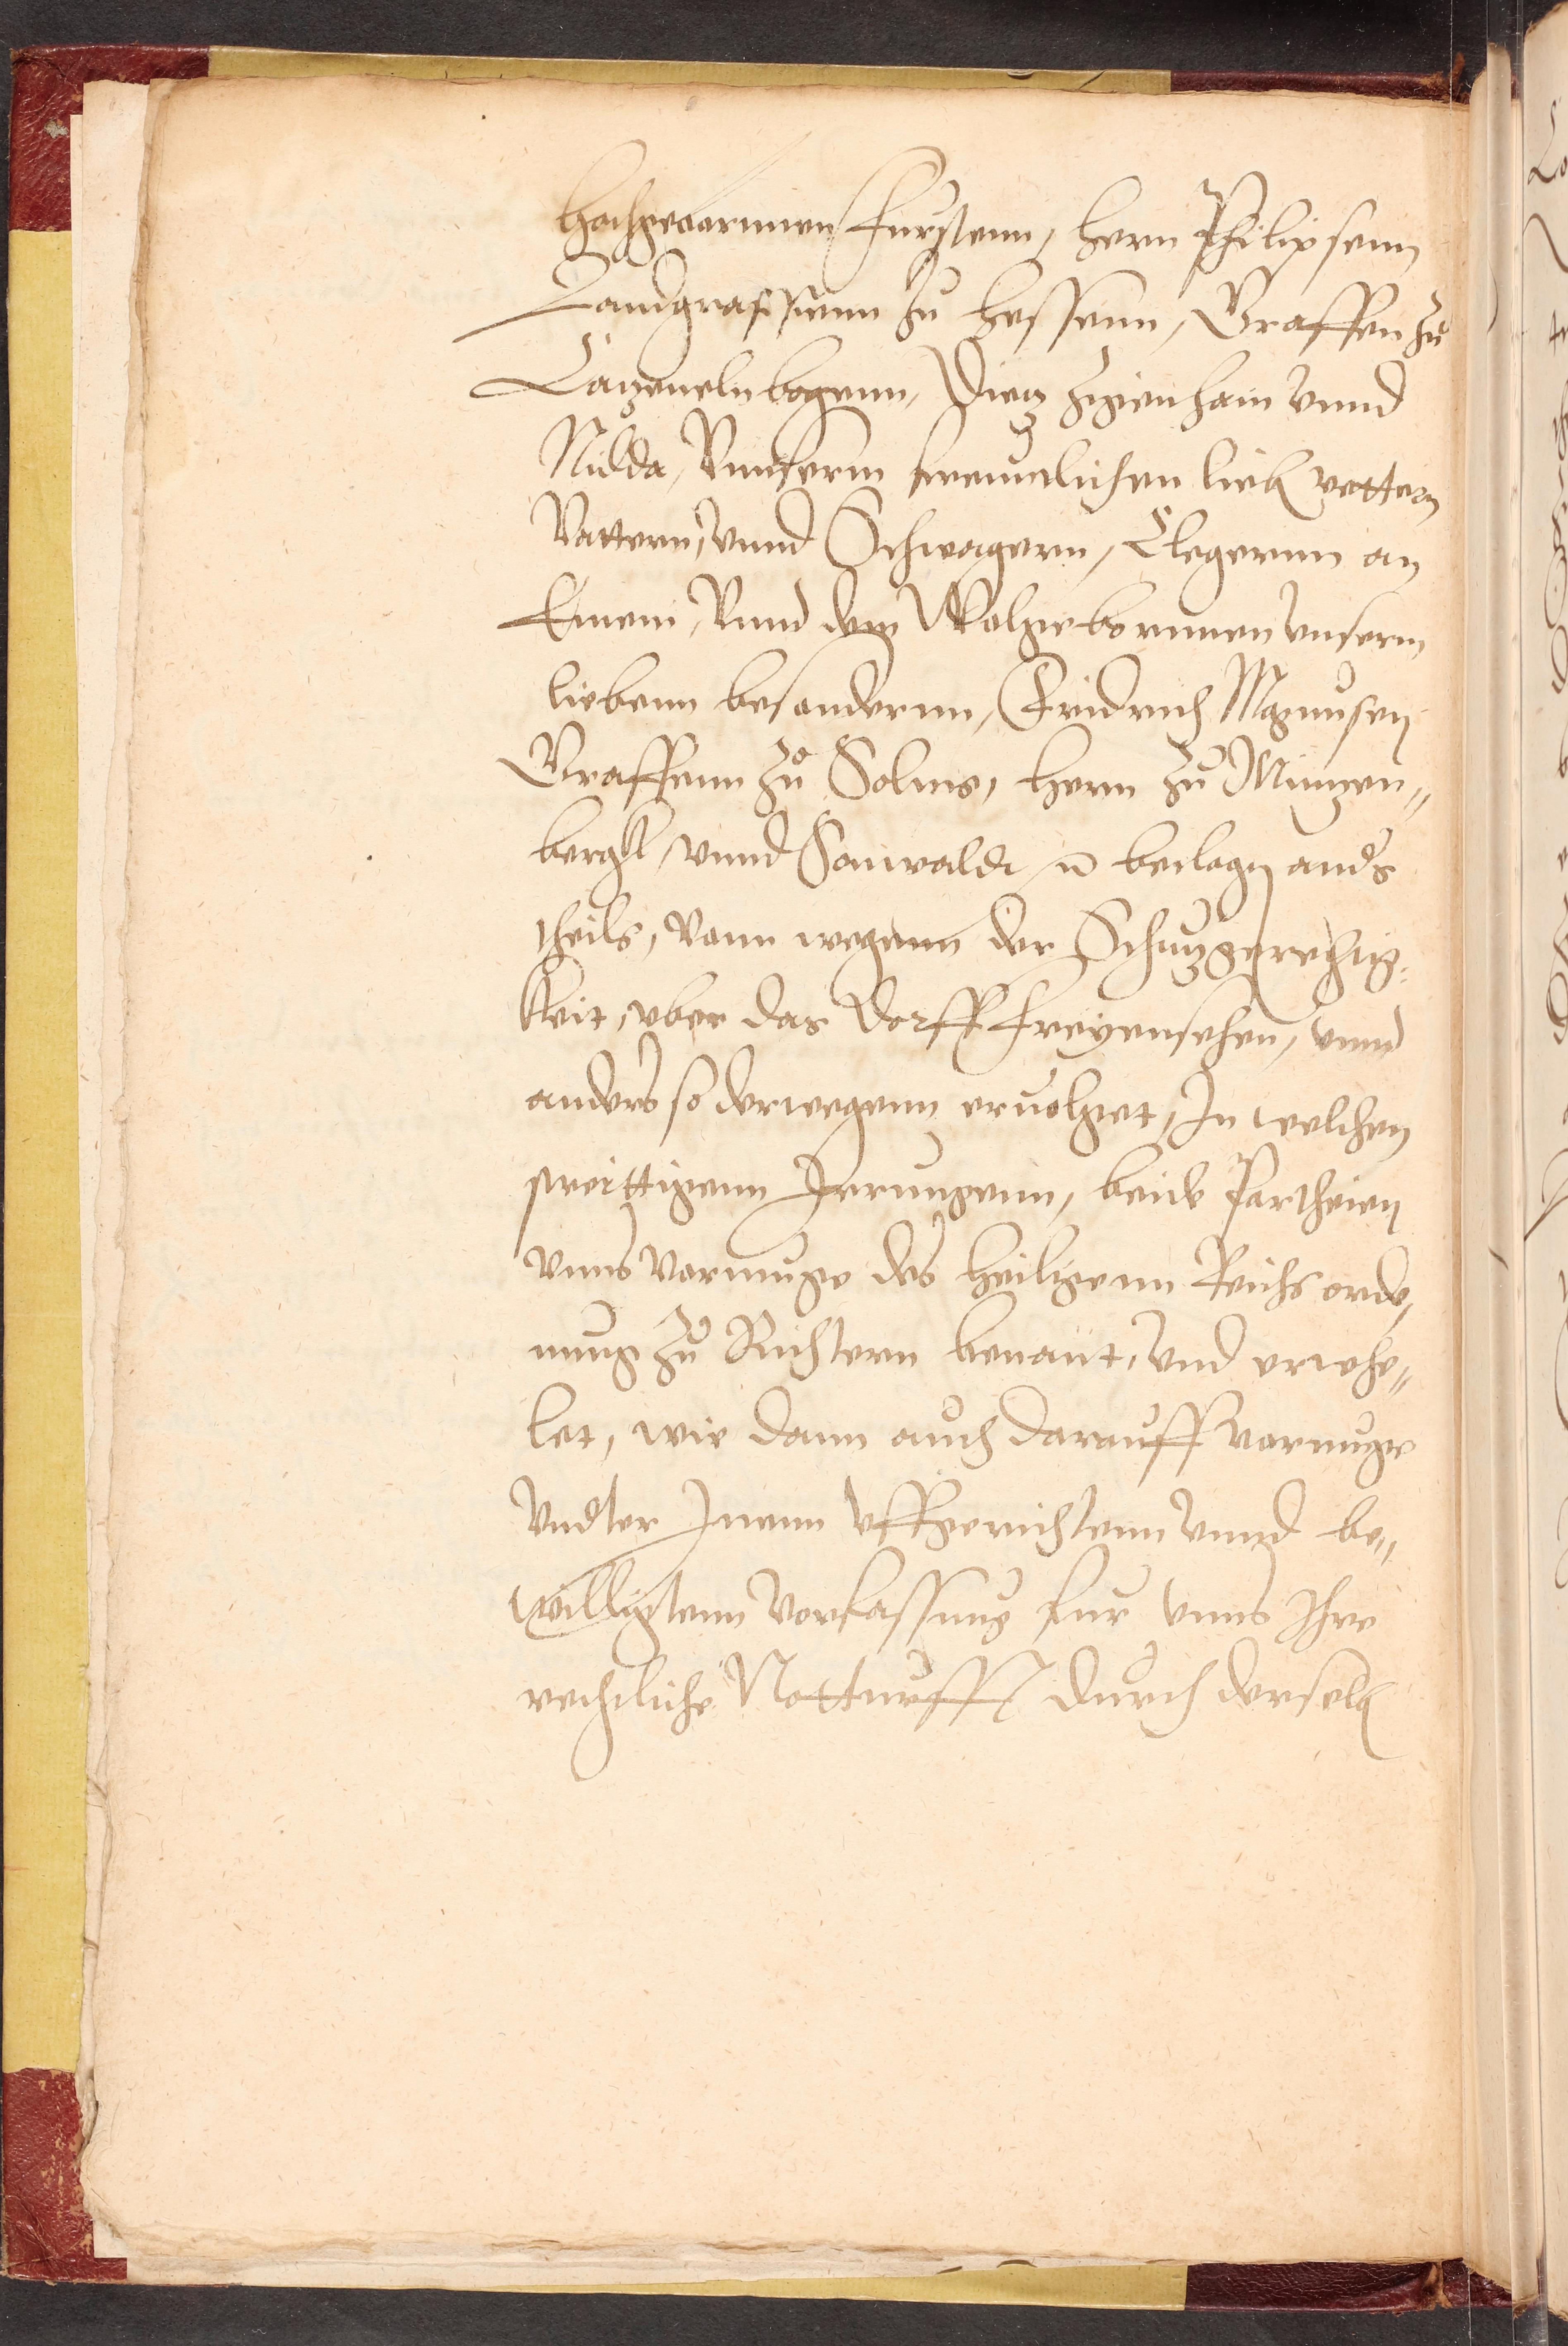 hochgebornnen Furstenn, hern Philipsenn
Landgraffenn zu hessenn, Graffen zů
Catzenelnbogenn, Dietz Ziegenhain vnnd
Nidda, Vnnserm freuntlichen lieb vettern
Vattern, vnnd Schwagern, Clegernn an
Einem, Vnnd dem Wolgebornnen vnserm
liebenn besondernn, Fridrich Magnusen
Graffenn zů Solms, hern zu Mintzen„
bergk, vnnd Sonwaldt, beclagten anders
theils, vonn wegenn der Schutzgerechtig„
keit, vber das Dorff Freyensehen, vnnd
anders so derwegenn eruolget, In welchen
streittigenn Irrungenn, beide Partheien
vnns vormuge des heiligenn Reichs orde„
nung zu Richtern benant, vnd erwehe„
let, wie dann auch darauff vormuge
Vndter Inenn vffgerichtenn vnnd be„
willigtenn Vorfassung fur vnns Ihre
rechtliche Notturfft durch derselb